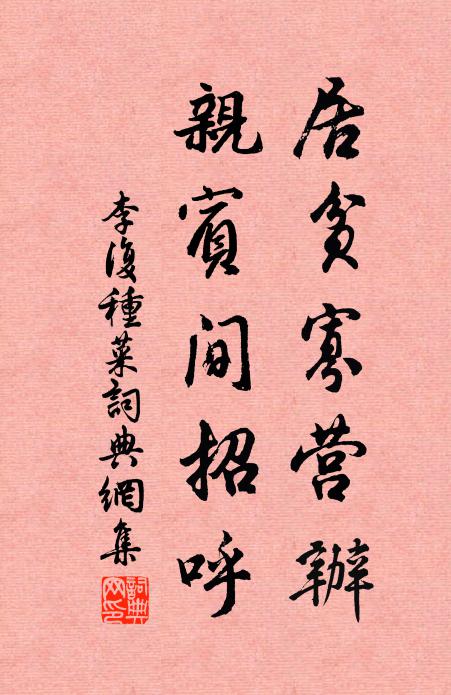 居貧寡营辦
親賓間招呼
李復種菜詞典網集
詞典网印